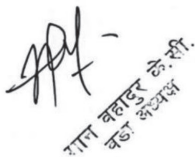 बहादुर के.सी.
वडा अध्यक्ष